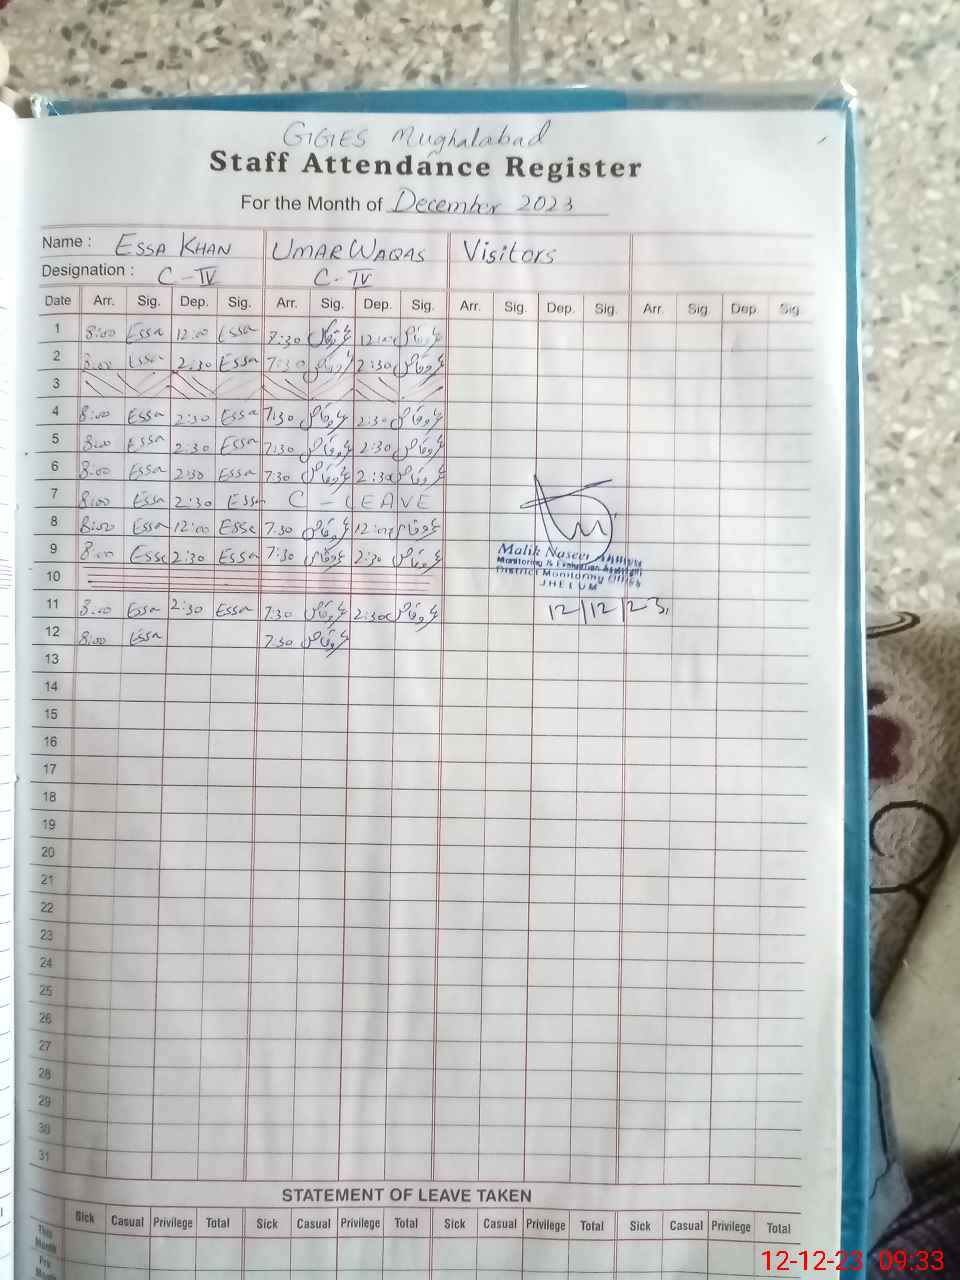 GGES Mughalabad
Staff Attendance Register
For the Month of December 2023
Name : ESSA KHAN UMAR WAQAS Visitors
Designation : C-IV C-IV
Date Arr. Sig. Dep. Sig. Arr. Sig. Dep. Sig. Arr. Sig. Dep. Sig. Arr. Sig. Dep. Sig.
1 8:00 Essa 12:00 Essa 7:30 عمروقاص 12:00 عمروقاص
2 8:00 Essa 2:30 Essa 7:30 عمروقاص 2:30 عمروقاص
3
4 8:00 Essa 2:30 Essa 7:30 عمروقاص 2:30 عمروقاص
5 8:00 Essa 2:30 Essa 7:30 عمروقاص 2:30 عمروقاص
6 8:00 Essa 2:30 Essa 7:30 عمروقاص 2:30 عمروقاص
7 8:00 Essa 2:30 Essa C-LEAVE
8 8:00 Essa 12:00 Essa 7:30 عمروقاص 12:00 عمروقاص
9 8:00 Essa 2:30 Essa 7:30 عمروقاص 2:30 عمروقاص
Malik Naseer
Monitoring & Evaluation Assistant
District Monitoring Office
JHELUM
10
11 8:00 Essa 2:30 Essa 7:30 عمروقاص 2:30 عمروقاص 12/12/23
12 8:00 Essa 7:30 عمروقاص
13
14
15
16
17
18
19
20
21
22
23
24
25
26
27
28
29
30
31
STATEMENT OF LEAVE TAKEN
Sick Casual Privilege Total Sick Casual Privilege Total Sick Casual Privilege Total Sick Casual Privilege Total
This Month
Pre. Month
12-12-23 09:33